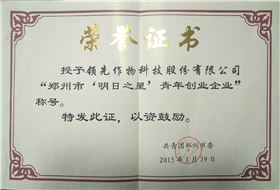 荣誉证书
授予领先作物科技股份有限公司
“郑州市‘明日之星’青年创业企业”
称号。
特发此证，以资鼓励。
共青团郑州市委
2015年1月29日